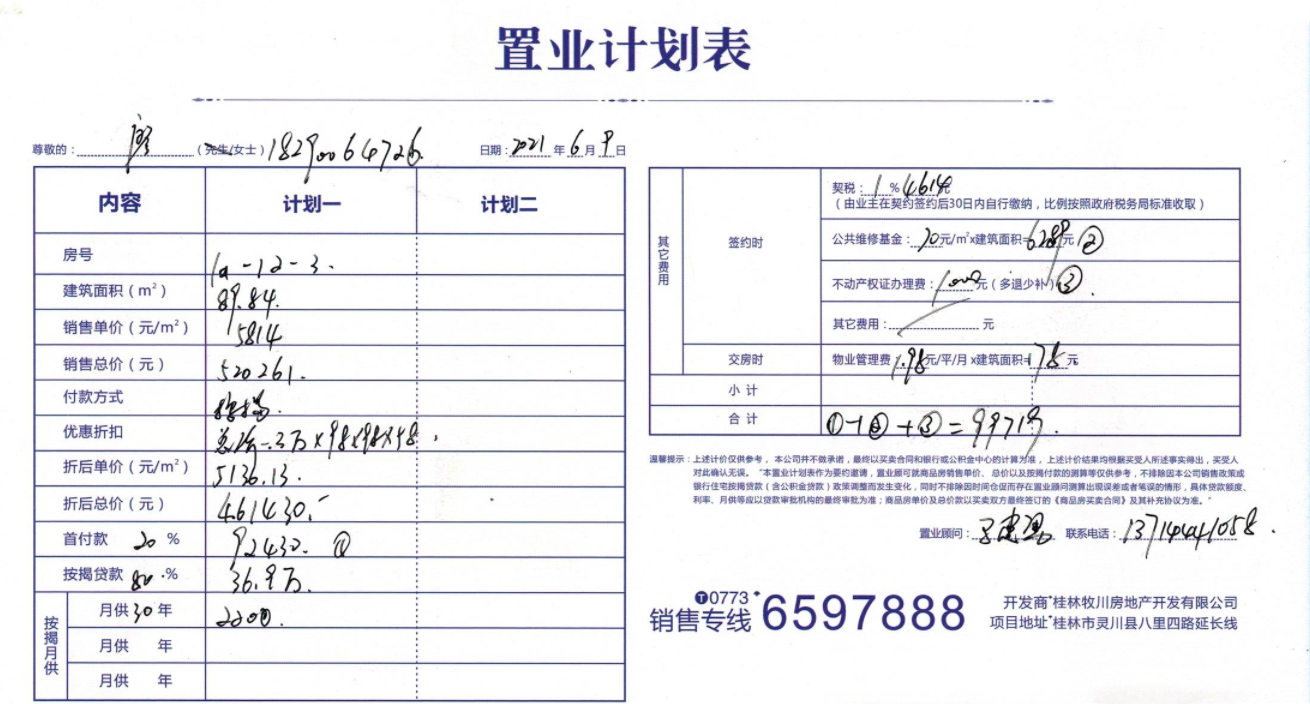 置业计划表
尊敬的：廖（先生/女士）18290064726.
日期：2021年6月9日
内容 计划一 计划二
房号 1a-12-3.
建筑面积（m²） 89.84.
销售单价（元/m²） 5814
销售总价（元） 520261.
付款方式 按揭.
优惠折扣 总价-2万×98×98×98.
折后单价（元/m²） 5136.13.
折后总价（元） 461430.-
首付款 20 % 92430. ①
按揭贷款 80.% 36.9万.
按揭月供
月供30年 2200.
月供 年
月供 年
其它费用
签约时
契税：1%4614元
（由业主在契约签约后30日内自行缴纳，比例按照政府税务局标准收取）
公共维修基金：70元/m²x建筑面积=6289元②
不动产权证办理费：1000元（多退少补）③.
其它费用： 元
交房时 物业管理费1.98元/平/月x建筑面积=178元
小计
合计 ①+②+③=99719.
温馨提示：上述计价仅供参考，本公司并不做承诺，最终以买卖合同和银行或公积金中心的计算为准，上述计价结果均根据买受人所述事实得出，买受人
对此确认无误。“本置业计划表作为要约邀请，置业顾可就商品房销售单价、总价以及按揭付款的测算等仅供参考，不排除因本公司销售政策或
银行住宅按揭贷款（含公积金贷款）政策调整而发生变化，同时不排除因时间仓促而存在置业顾问测算出现误差或者笔误的情形，具体贷款额度、
利率、月供等应以贷款审批机构的最终审批为准；商品房单价及总价款以买卖双方最终签订的《商品房买卖合同》及其补充协议为准。”
置业顾问： 联系电话：13714441058.
T0773
销售专线 6597888
开发商 桂林牧川房地产开发有限公司
项目地址 桂林市灵川县八里四路延长线